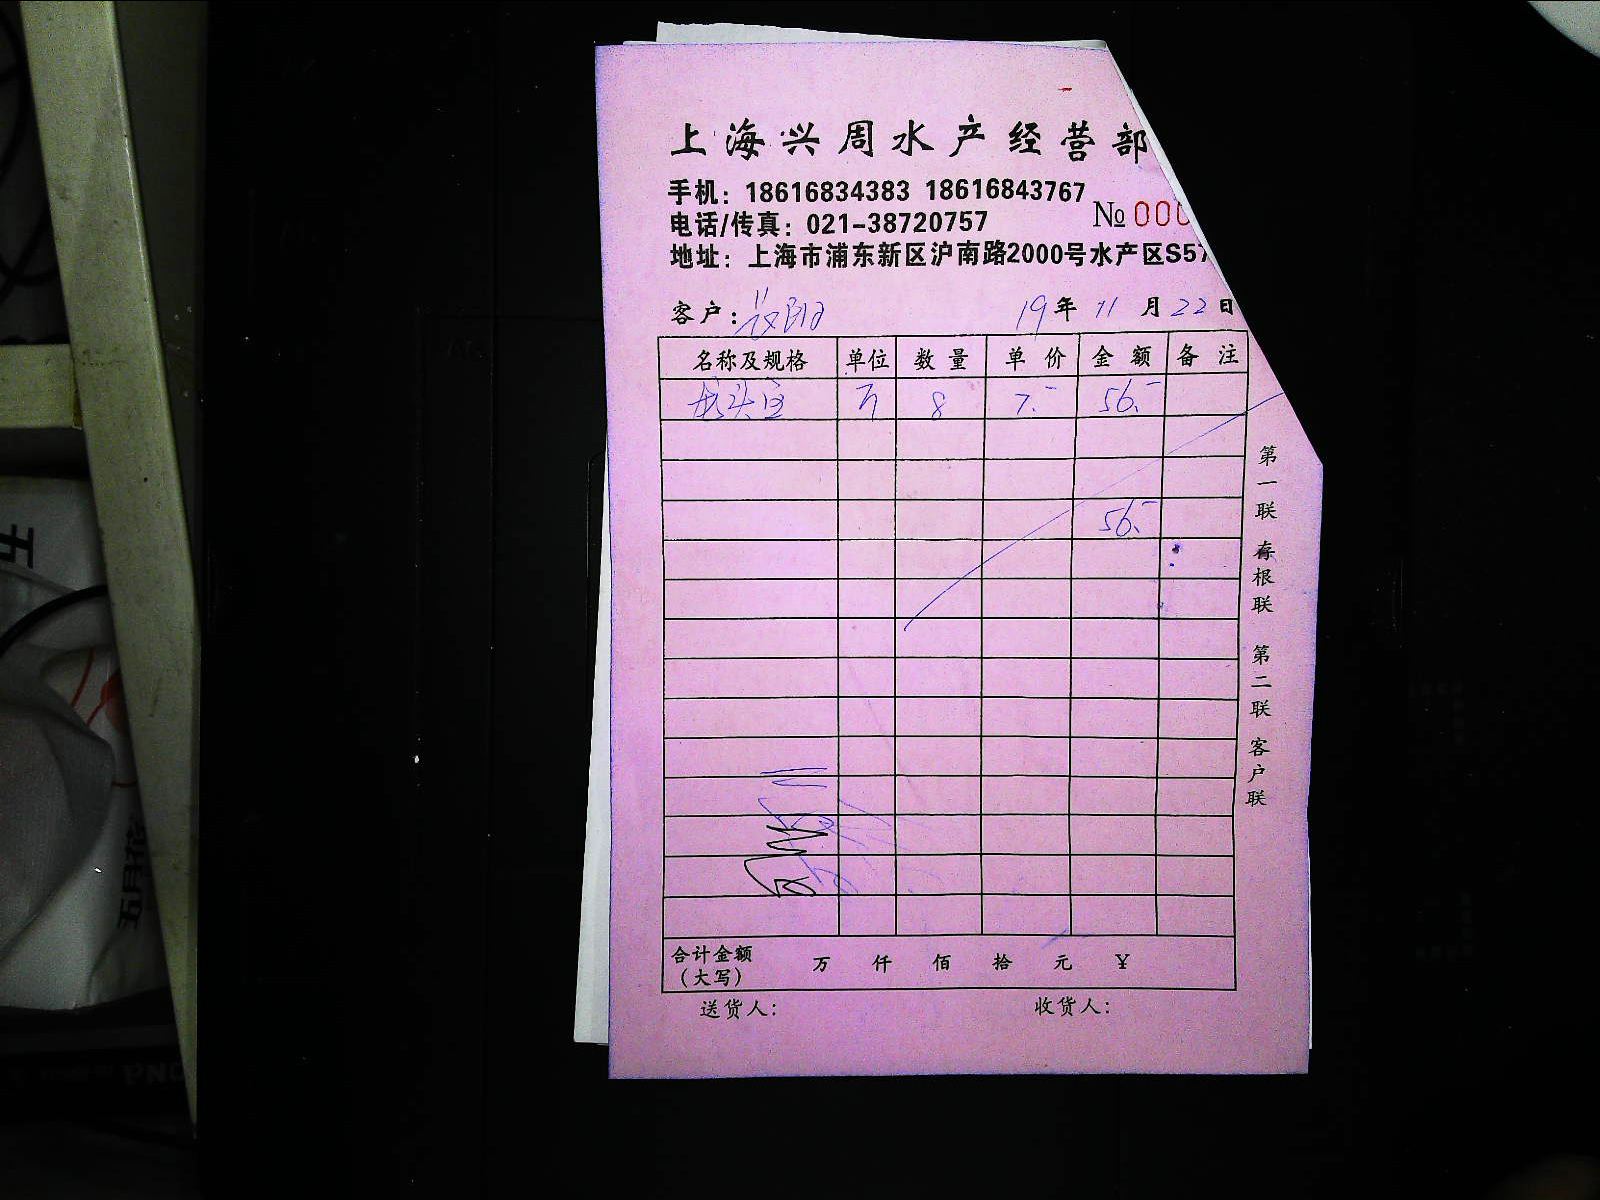 上海兴周水产经营部
手机：18616834383 18616843767
电话/传真：021-38720757
№ 000
地址：上海市浦东新区沪南路2000号水产区S57
客户： 19年 11月 22日
名称及规格 单位 数量 单价 金额 备注
8 7.- 56.-
56.-
合计金额（大写） 万 仟 佰 拾 元 ¥
送货人： 收货人：
第一联 存根联 第二联 客户联
五
五月花